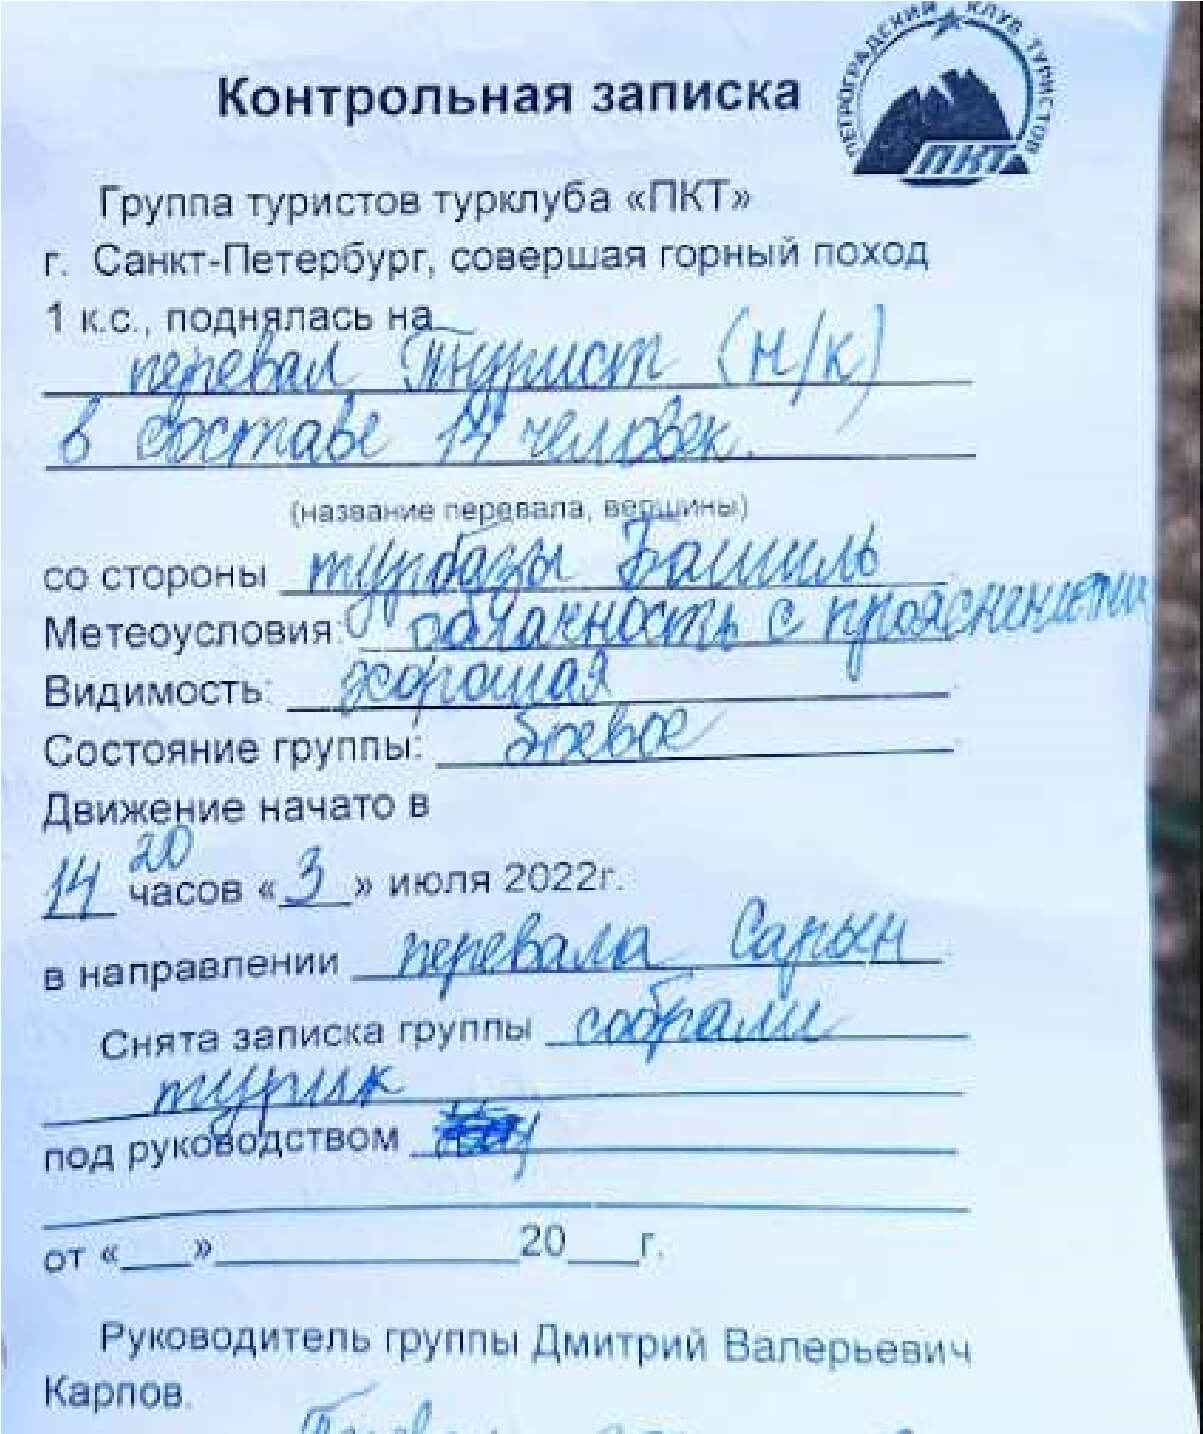 ПЕТРОГРАДСКИЙ КЛУБ ТУРИСТОВ
ПКТ
Контрольная записка
Группа туристов турклуба «ПКТ»
г. Санкт-Петербург, совершая горный поход
1 к.с., поднялась на
перевал Турист (н/к)
в составе 14 человек.
(название перевала, вершины)
со стороны турбазы Башиль
Метеоусловия: облачность с прояснениями
Видимость: хорошая
Состояние группы: боевое
Движение начато в
14 20 часов «3» июля 2022г.
в направлении перевала Сарын
Снята записка группы собрали
турик
под руководством
от «___»______________20___г.
Руководитель группы Дмитрий Валерьевич
Карпов.